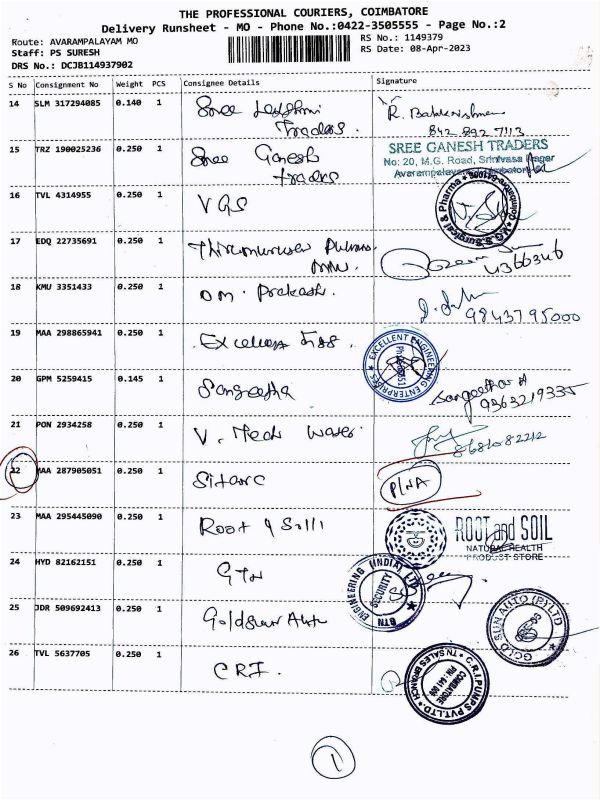 THE PROFESSIONAL COURIERS, COIMBATORE
Delivery Runsheet - MO - Phone No.:0422-3505555 - Page No.:2
Route: AVARAMPALAYAM MO
RS No.: 1149379
Staff: PS SURESH
RS Date: 08-Apr-2023
DRS No.: DCJB114937902
S No Consignment No Weight PCS Consignee Details Signature
14 SLM 317294085 0.140 1 Sree Lakshmi
Traders.
R. Balakrishnan
842 892 7113
15 TRZ 190025236 0.250 1 Sree Ganesh
traders
SREE GANESH TRADERS
No: 20, M.G. Road, Srinivasa Nagar
Avarampalayam, Coimbatore
16 TVL 4314955 0.250 1 VGS
M.G.S. Surgical & Pharma
17 EDQ 22735691 0.250 1
4366346
18 KMU 3351433 0.250 1 Om. Prakash.
9843795000
19 MAA 298865941 0.250 1
EXCELLENT ENGINEERING ENTERPRISES
20 GPM 5259415 0.145 1 Sangeetha
Sangeetha A
9363219335
21 PON 2934258 0.250 1 V. Tech Water
8681082212
22 MAA 287905051 0.250 1 Sitarc
P/NA
23 MAA 295445090 0.250 1 Root & Soill
ROOT and SOIL
NATURAL HEALTH
PRODUCT STORE
24 HYD 82162151 0.250 1 GTN
GTN ENGINEERING (INDIA) LTD
SECURITY
25 JDR 509692413 0.250 1 Goldsun Auto
GOLD SUN AUTO (P) LTD
26 TVL 5637705 0.250 1 CRI.
C.R.I. PUMPS PVT. LTD.
TN SALES BRANCH
COIMBATORE
1